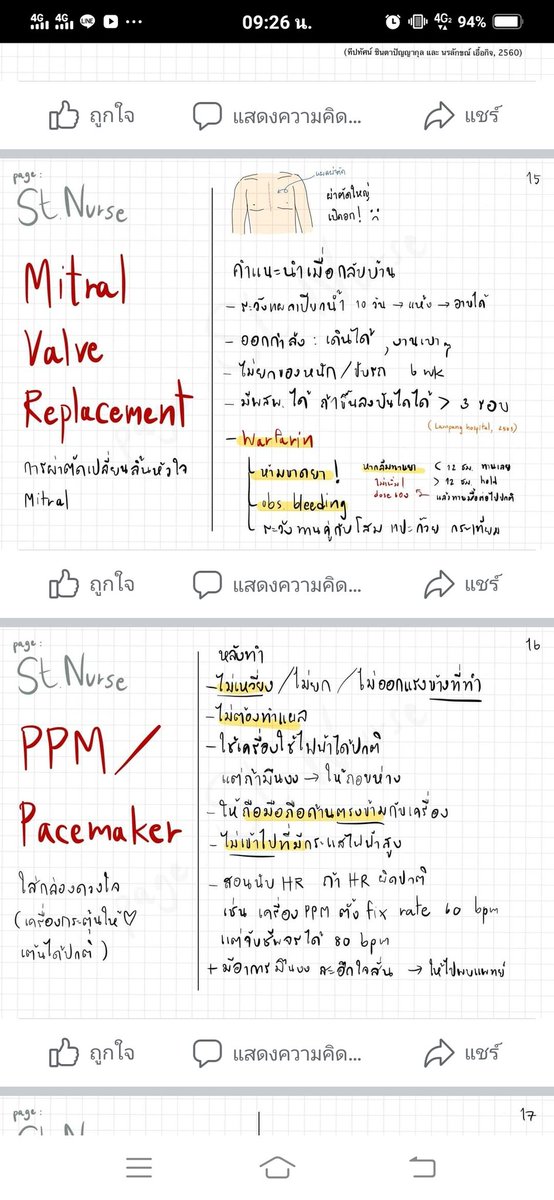 4G 4G LINE
09:26 น.
4G2 94%
(ทีปทัศน์ ชินตาปัญญากุล และ นรลักขณ์ เอื้อกิจ, 2560)
ถูกใจ
แสดงความคิด...
แชร์
page:
St.Nurse
15
Mitral
Valve
Replacement
การผ่าตัดเปลี่ยนลิ้นหัวใจ
Mitral
ผ่าตัดใหญ่
เปิดอก!
คำแนะนำเมื่อกลับบ้าน
- ระวังแผลเปียกน้ำ 10 วัน → แห้ง → อาบได้
- ออกกำลัง : เดินได้, งานเบาๆ
- ไม่ยกของหนัก/ขับรถ 6 wk
- มีพสพ. ได้ ถ้าขึ้นลงบันไดได้ > 3 รอบ
(Lampang hospital, 2561)
- Warfarin
ห้ามขาดยา!
หากลืมทานยา < 12 ชม. ทานเลย
> 12 ชม. hold
ไม่เพิ่ม! dose เอง
แล้วทานมื้อต่อไปปกติ
obs bleeding
ระวังทานคู่กับโสม แปะก๊วย กระเทียม
ถูกใจ
แสดงความคิด...
แชร์
page:
St.Nurse
16
PPM/
Pacemaker
ใส่กล่องดวงใจ
(เครื่องกระตุ้นให้♡
เต้นได้ปกติ)
หลังทำ
- ไม่เหวี่ยง/ไม่ยก/ไม่ออกแรงข้างที่ทำ
- ไม่ต้องทำแผล
- ใช้เครื่องใช้ไฟฟ้าได้ปกติ
แต่ถ้ามึนงง → ให้ถอยห่าง
- ให้ถือมือถือด้านตรงข้ามกับเครื่อง
- ไม่เข้าไปที่มีกระแสไฟฟ้าสูง
- สอนนับ HR ถ้า HR ผิดปกติ
เช่น เครื่อง PPM ตั้ง fix rate 60 bpm
แต่จับชีพจรได้ 80 bpm
+ มีอาการมึนงง สะอึกใจสั่น → ให้ไปพบแพทย์
ถูกใจ
แสดงความคิด...
แชร์
page:
17